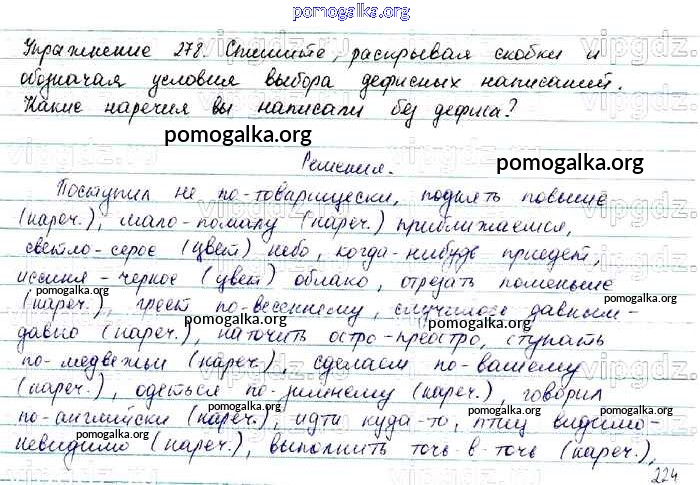 pomogalka.org
Упражнение 278. Спишите, раскрывая скобки и
обозначая условия выбора дефисных написаний.
Какие наречия вы написали без дефиса?
pomogalka.org
Решения.
pomogalka.org
Поступил не по-товарищески, поднять повыше
(нареч.), мало-помалу (нареч.) приближаемся,
светло-серое (цвет) небо, когда-нибудь приедет,
иссиня-черное (цвет) облако, отрезать поменьше
pomogalka.org
pomogalka.org
(нареч.), греет по-весеннему, случилось давным-
pomogalka.org
давно (нареч.), наточить остро-преостро, ступать
по-медвежьи (нареч.), сделаем по-вашему
pomogalka.org
(нареч.), одеться по-зимнему (нареч.), говорил
pomogalka.org
по-английски (нареч.), идти куда-то, птиц видимо-
pomogalka.org
невидимо (нареч.), выполнить точь-в-точь (нареч.),
224
vipgdz.